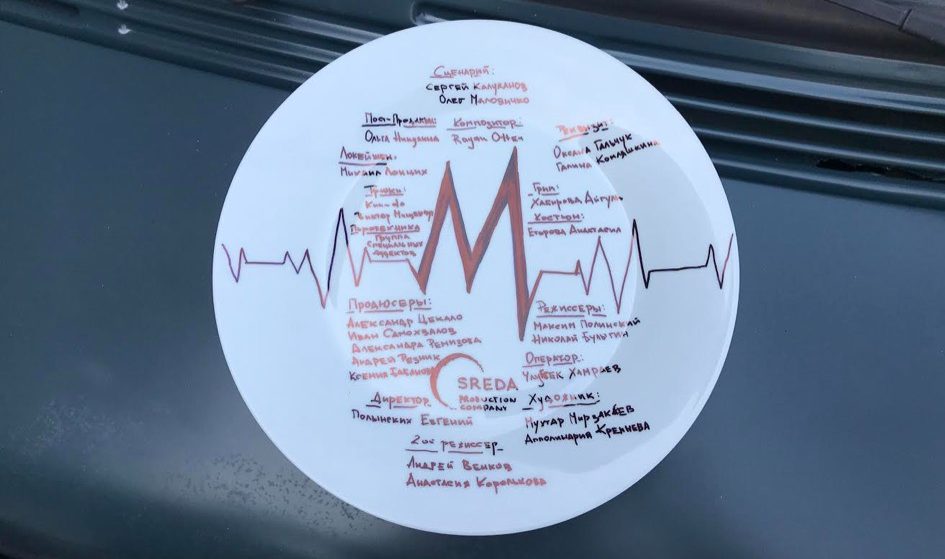 Сценарий:
Сергей Калужанов
Олег Маловичко
Пост-Продакшн:
Ольга Ницулина
Композитор:
Ryan Otter
Реквизит:
Оксана Гальчук
Галина Конляшкина
Локейшн:
Михаил Лонших
Трюки:
Виктор Мищенко
Пиротехника
Группа
Специальных
эффектов
Грип:
Хабирова Айгуль
Костюм:
Егорова Анастасия
М
Продюсеры:
Александр Цекало
Иван Самохвалов
Александра Ремизова
Андрей Резник
Ксения
Режиссеры:
Максим Полинский
Николай Булыгин
Оператор:
Улугбек Хамраев
SREDA
PRODUCTION
COMPANY
Директор
Полынских Евгений
Художник:
Мухтар Мирзакеев
Апполинария Кремнева
2ой режиссер
Андрей Венков
Анастасия Королькова